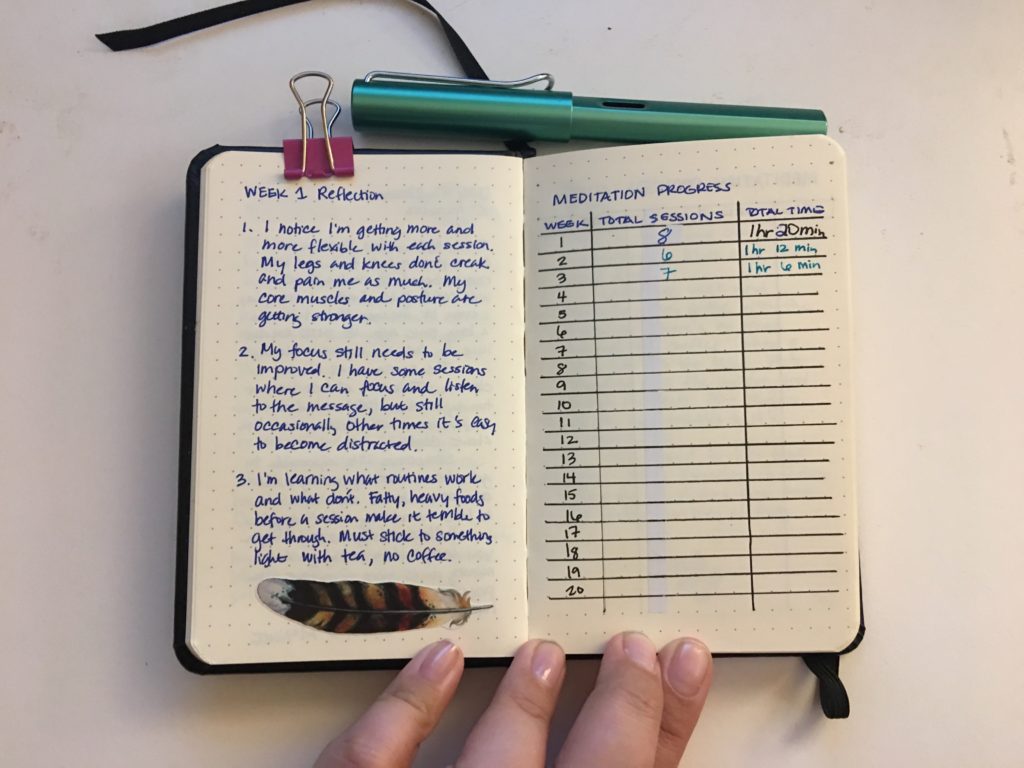 WEEK 1 Reflection
1. I notice I'm getting more and
more flexible with each session.
My legs and knees don't creak
and pain me as much. My
core muscles and posture are
getting stronger.
2. My focus still needs to be
improved. I have some sessions
where I can focus and listen
to the message, but still
occasionally other times it's easy
to become distracted.
3. I'm learning what routines work
and what don't. Fatty, heavy foods
before a session make it terrible to
get through. Must stick to something
light with tea, no coffee.
MEDITATION PROGRESS
WEEK TOTAL SESSIONS TOTAL TIME
1 8 1 hr 20 min
2 6 1 hr 12 min
3 7 1 hr 6 min
4
5
6
7
8
9
10
11
12
13
14
15
16
17
18
19
20